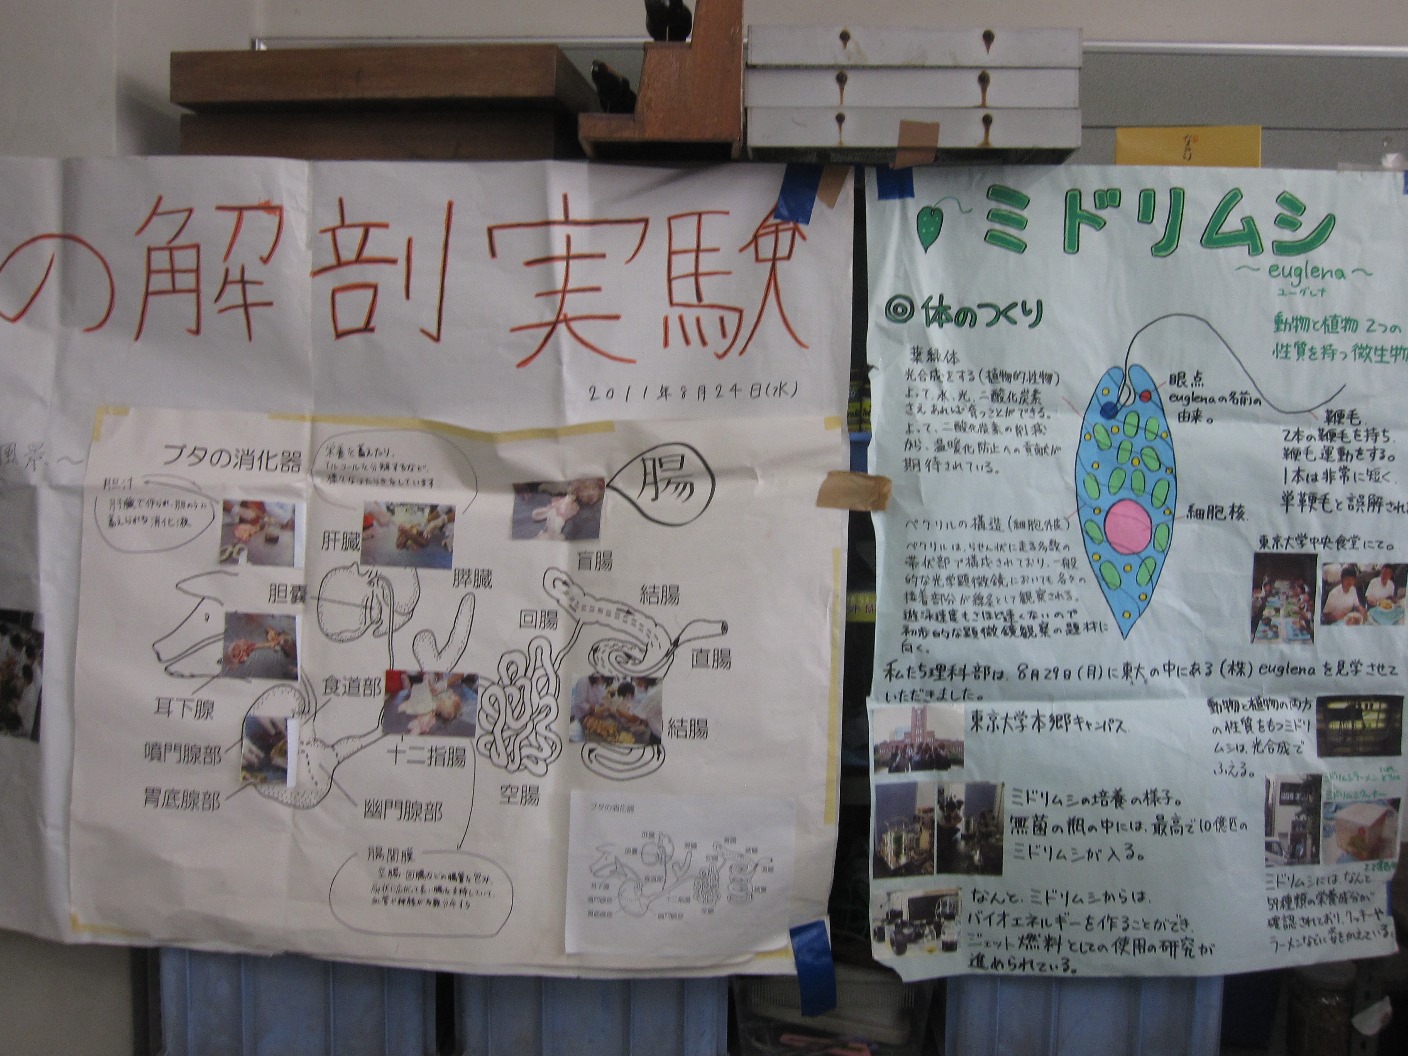 の解剖実験
2011年8月24日(水)
ブタの消化器
栄養を蓄えたり、
アルコールを分解するなど、
様々なはたらきをしています
胆汁
腸
肝臓
膵臓
盲腸
胆嚢
回腸
結腸
直腸
食道部
耳下腺
噴門腺部
十二指腸
結腸
胃底腺部
幽門腺部
空腸
腸間膜
ブタの消化器
ミドリムシ
~euglena~
ユーグレナ
動物と植物 2つの
性質を持つ微生物
◎体のつくり
葉緑体
光合成をする(植物的性物)
よって、水、光、二酸化炭素
さえあれば育つことができる。
よって、二酸化炭素の削減
から、温暖化防止への貢献が
期待されている。
眼点
euglenaの名前の
由来。
鞭毛
2本の鞭毛を持ち、
鞭毛運動をする。
1本は非常に短く、
単鞭毛と誤解され
細胞核
ペクリルの構造(細胞外皮)
ペクリルは、らせん状に走る多数の
帯状部で構成されており、一般
的な光学顕微鏡においても各々の
接着部分が線条として観察される。
遊泳速度もさほど速くないので
初歩的な顕微鏡観察の題材に
向く。
東京大学中央食堂にて。
私たち理科部は、8月29日(月)に東大の中にある(株)euglenaを見学させて
いただきました。
東京大学本郷キャンパス
動物と植物の両方
の性質をもつミドリ
ムシは、光合成で
ふえる。
ミドリムシラーメン
ミドリムシクッキー
ミドリムシの培養の様子。
無菌の瓶の中には、最高で10億匹の
ミドリムシが入る。
なんと、ミドリムシからは、
バイオエネルギーを作ることができ、
ジェット燃料としての使用の研究が
進められている。
ミドリムシには、なんと
59種類の栄養成分が
確認されており、クッキーや
ラーメンなどに姿をかえている。